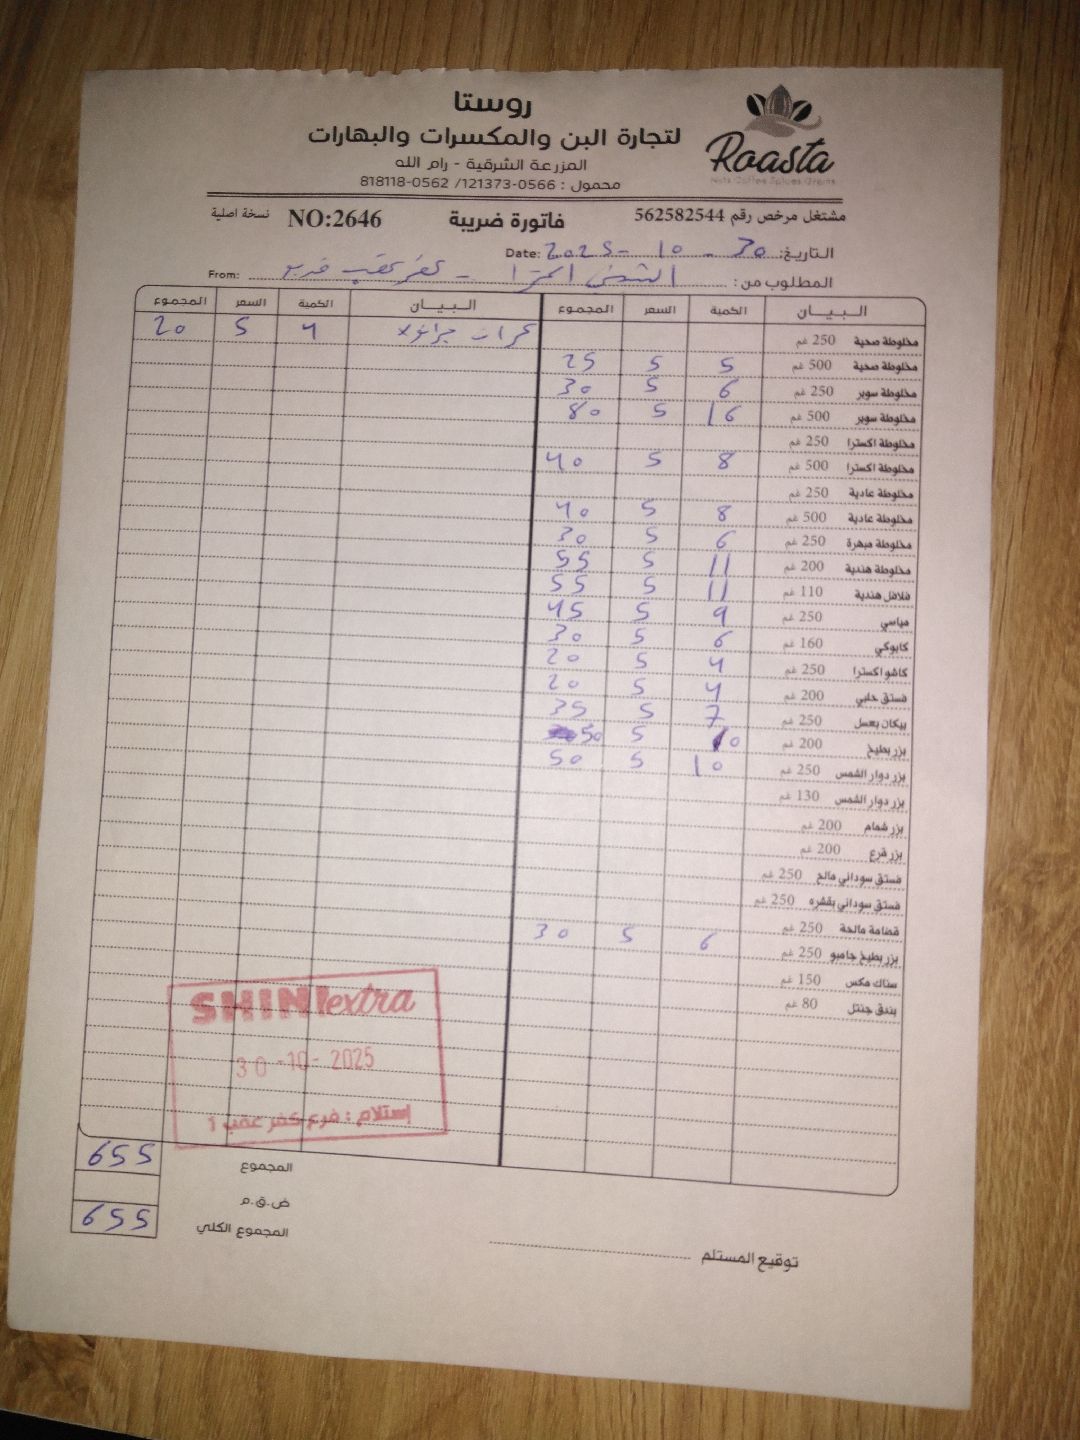 روستا
لتجارة البن والمكسرات والبهارات
المزرعة الشرقية - رام الله
محمول : 0566-121373/ 0562-818118
Roasta
Nuts Coffee Spices Grains
مشتغل مرخص رقم 562582544 فاتورة ضريبة NO:2646 نسخة اصلية
التاريخ: 30 - 10 - 2025 Date:
المطلوب من: كفر عقب From:
البيـــان الكمية السعر المجموع البيـــان الكمية السعر المجموع
مخلوطة صحية 250 غم 4 5 20
مخلوطة صحية 500 غم 5 5 25
مخلوطة سوبر 250 غم 6 5 30
مخلوطة سوبر 500 غم 16 5 80
مخلوطة اكسترا 250 غم
مخلوطة اكسترا 500 غم 8 5 40
مخلوطة عادية 250 غم
مخلوطة عادية 500 غم 8 5 40
مخلوطة مبهرة 250 غم 6 5 30
مخلوطة هندية 200 غم 11 5 55
فلافل هندية 110 غم 11 5 55
مياسي 250 غم 9 5 45
كابوكي 160 غم 6 5 30
كاشو اكسترا 250 غم 4 5 20
فستق حلبي 200 غم 4 5 20
بيكان بعسل 250 غم 7 5 35
بزر بطيخ 200 غم 10 5 50
بزر دوار الشمس 250 غم 10 5 50
بزر دوار الشمس 130 غم
بزر شمام 200 غم
بزر قرع 200 غم
فستق سوداني مالح 250 غم
فستق سوداني بقشره 250 غم
قضامة مالحة 250 غم 6 5 30
بزر بطيخ جامبو 250 غم
سناك مكس 150 غم
بندق جنتل 80 غم
SHINI extra
30-10-2025
إستلام : فرع كفر عقب 1
المجموع 655
ض.ق.م
المجموع الكلي 655
توقيع المستلم